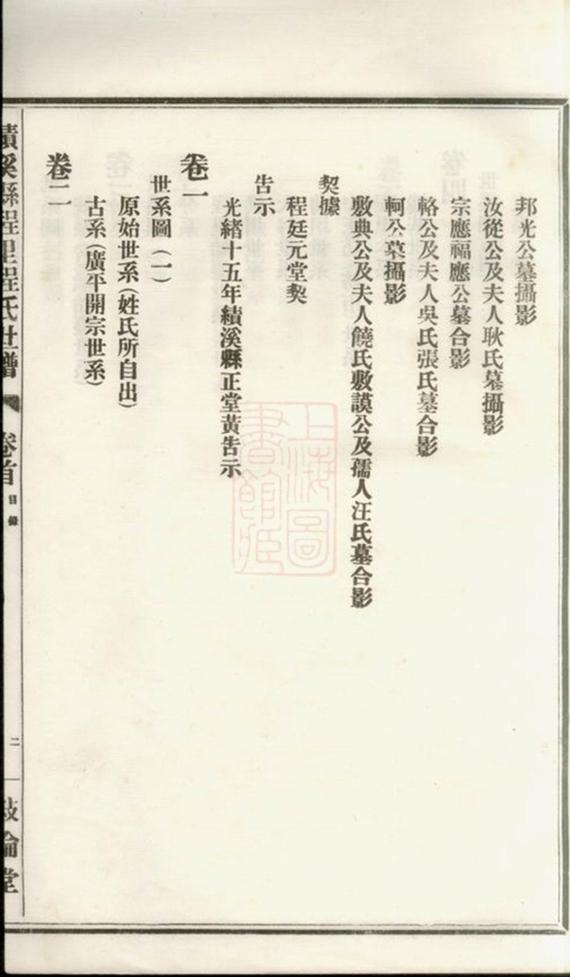 邦光公墓攝影
汝從公及夫人耿氏墓攝影
宗應福應公墓合影
輅公及夫人吳氏張氏墓合影
軻公墓攝影
敷典公及夫人饒氏敷謨公及孺人汪氏墓合影
契據
程廷元堂契
告示
光緒十五年績溪縣正堂黃告示
卷一
世系圖(一)
原始世系(姓氏所自出)
古系(廣平開宗世系)
卷二
績溪縣程里程氏世譜 卷首 目錄 二 敍倫堂
上海圖書館藏